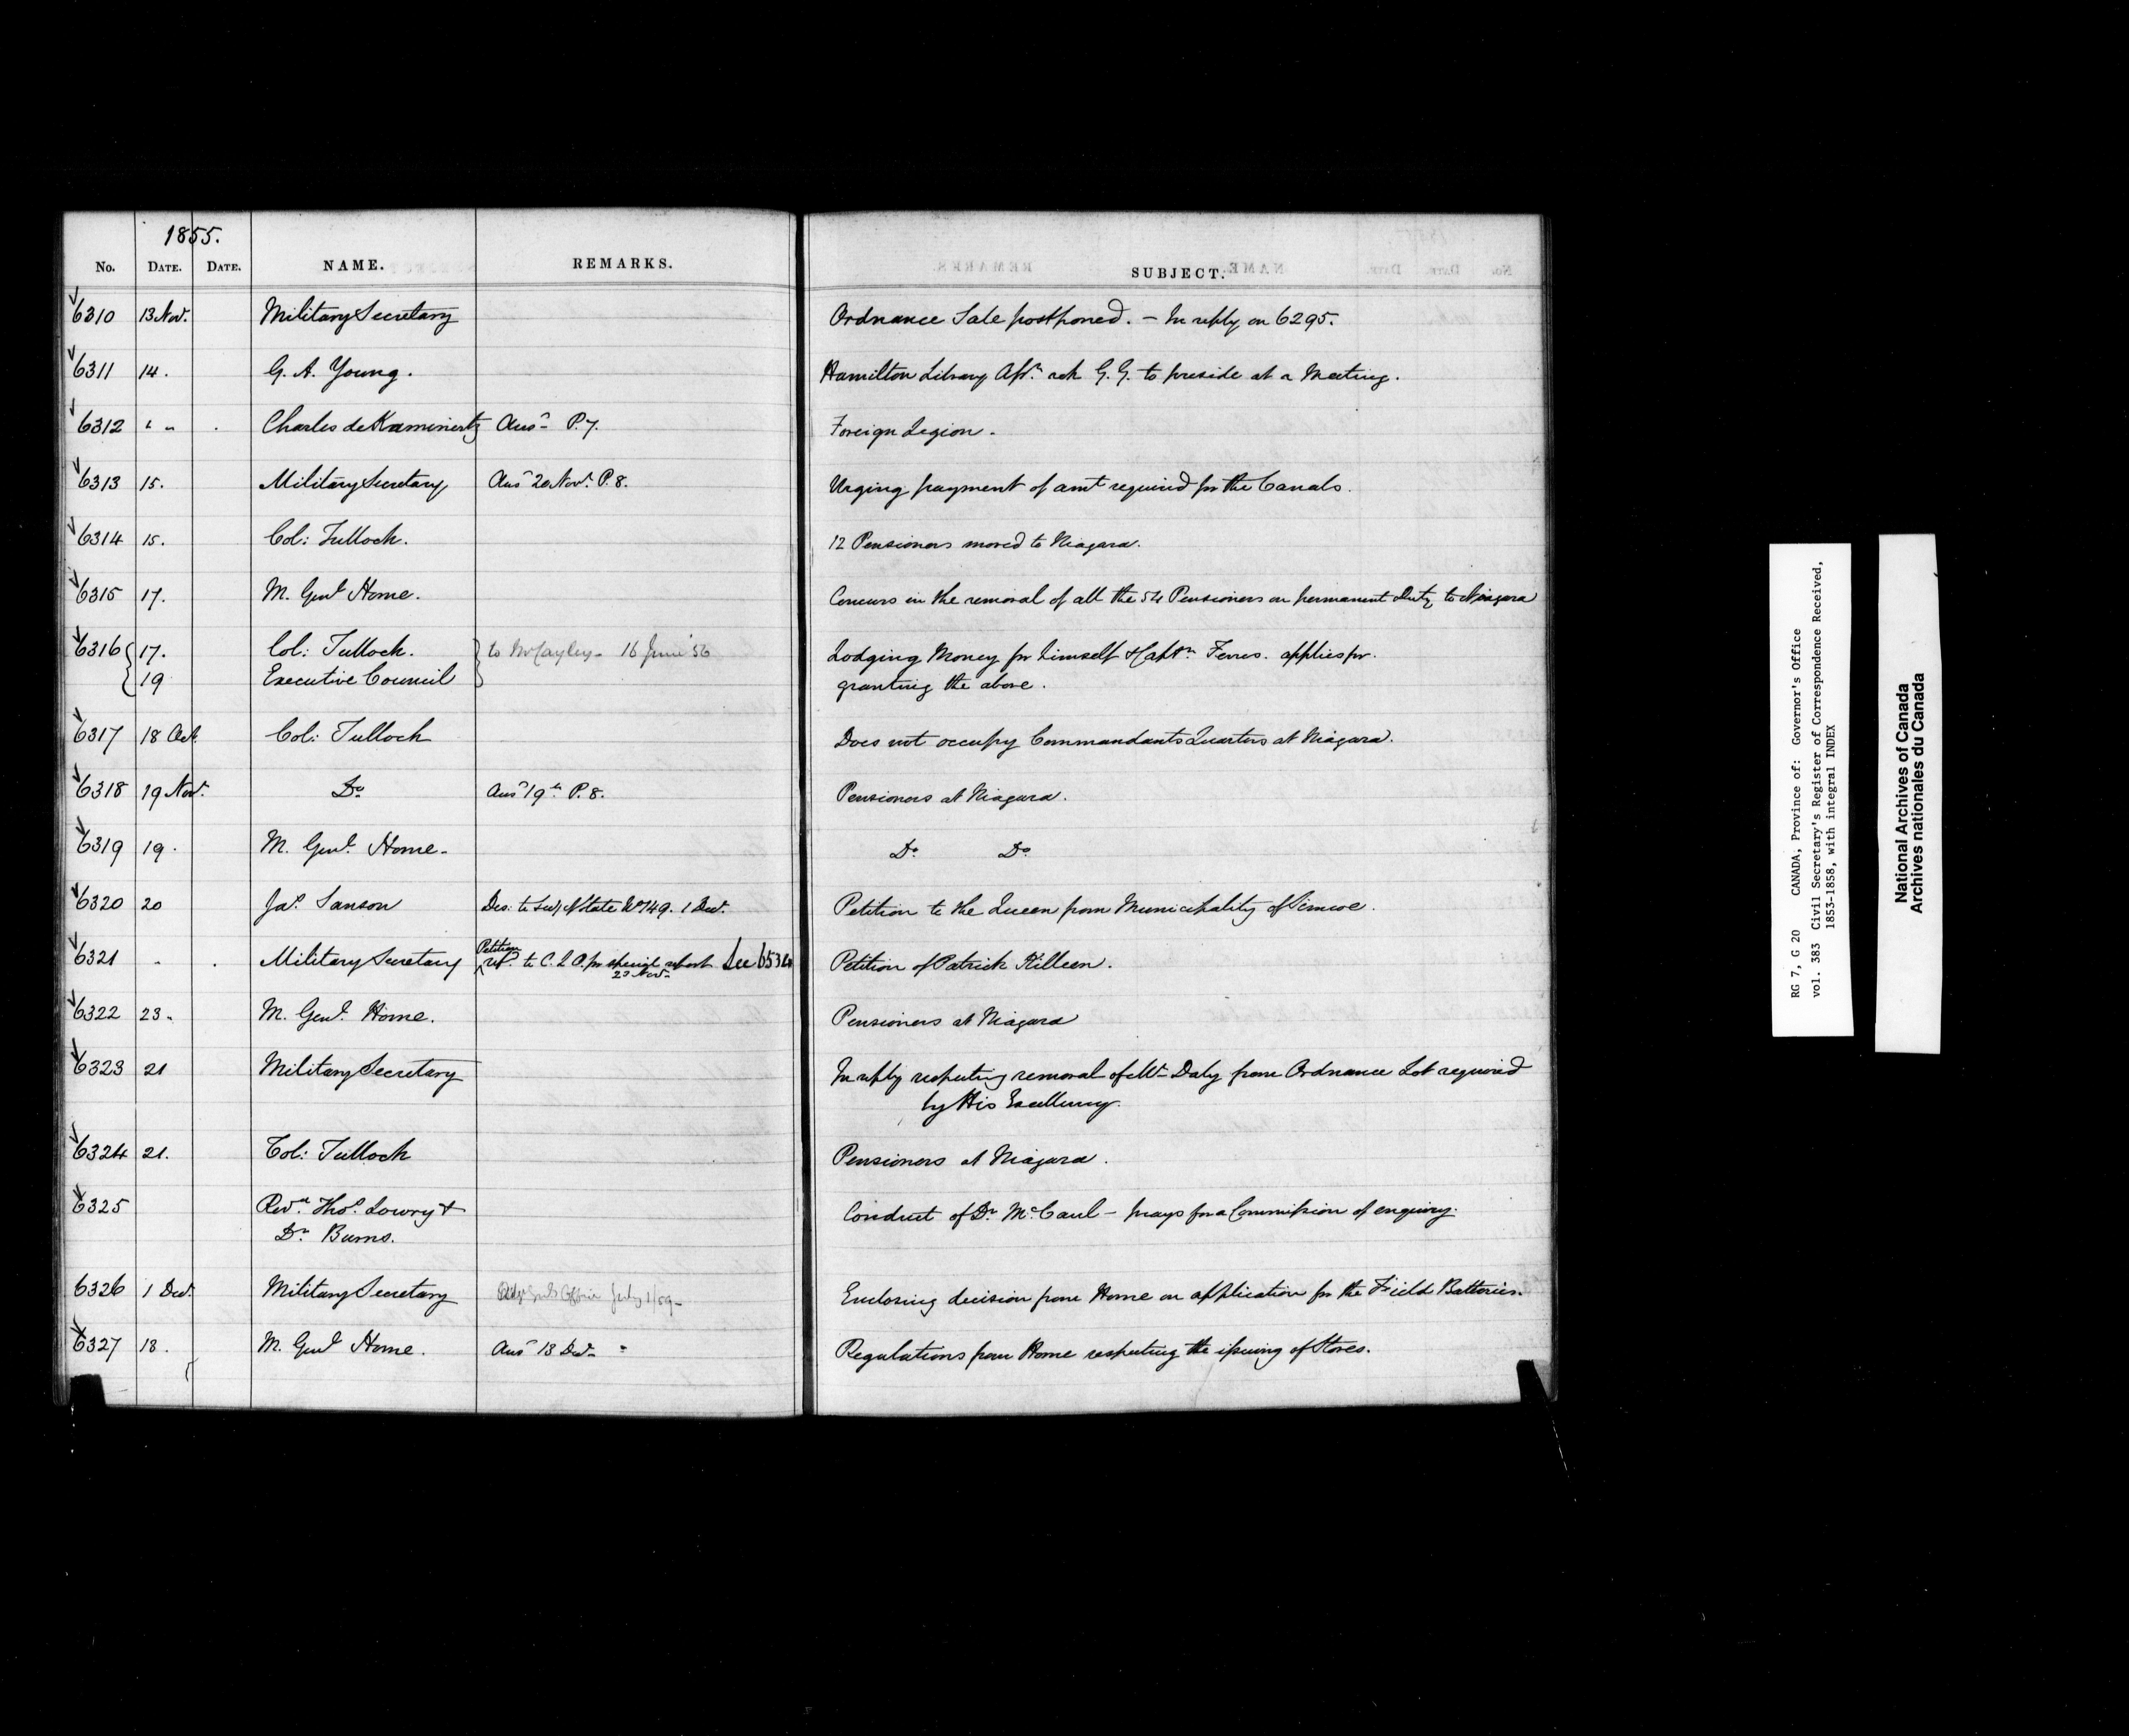 1855.
No. DATE. DATE. NAME. REMARKS. SUBJECT.
6310 13 Nov. Military Secretary Ordnance Sale postponed. – In reply on 6295.
6311 14. G. A. Young. Hamilton Library Assn. ask G. G. to preside at a Meeting.
6312 " " Charles de Kaminertz Ansd P. 7. Foreign Legion.
6313 15. Military Secretary Ansd 20 Novr. P. 8. Urging payment of amt required for the Canals.
6314 15. Col: Tulloch. 12 Pensioners moved to Niagara.
6315 17. M. Genl Home. Concurs in the removal of all the 54 Pensioners on permanent Duty to Niagara
6316 17. Col: Tulloch. to Mr Cayley – 16 June '56 Lodging Money for himself & Captn. Ferres. applies for.
19 Executive Council granting the above.
6317 18 Oct. Col: Tulloch Does not occupy Commandants Quarters at Niagara.
6318 19 Novr. Do Ansd 19th P. 8. Pensioners at Niagara.
6319 19. M. Genl. Home. Do. Do.
6320 20 Jas. Sanson Des: to Secy of State No 149. 1 Decr. Petition to the Queen from Municipality of Simcoe.
6321 " Military Secretary Petition refd. to C. L. O. for special report 23 Novr. See 6534 Petition of Patrick Killeen.
6322 23. M. Genl. Home. Pensioners at Niagara
6323 21 Military Secretary In reply respecting removal of Mr. Daly from Ordnance Lot required
by His Excellency.
6324 21. Col: Tulloch Pensioners at Niagara.
6325 Revd. Thos. Lowry & Conduct of Dr. McCaul – prays for a Commission of enquiry.
Dr. Burns.
6326 1 Decr. Military Secretary Office July 1/59 – Enclosing decision from Home on application for the Field Batteries.
6327 18. M. Genl Home. Ansd 18 Decr. " Regulations from Home respecting the issuing of Stores.
RG 7, G 20 CANADA, Province of: Governor's Office
vol. 383 Civil Secretary's Register of Correspondence Received,
1853-1858, with integral INDEX
National Archives of Canada
Archives nationales du Canada